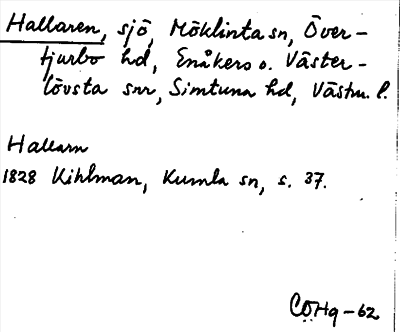 Hallaren, sjö, Möklinta sn, Över-
tjurbo hd, Enåkers o. Väster-
lövsta snr, Simtuna hd, Västm. l.
Hallarn
1828 Kihlman, Kumla sn, s. 37.
CÖHg-62